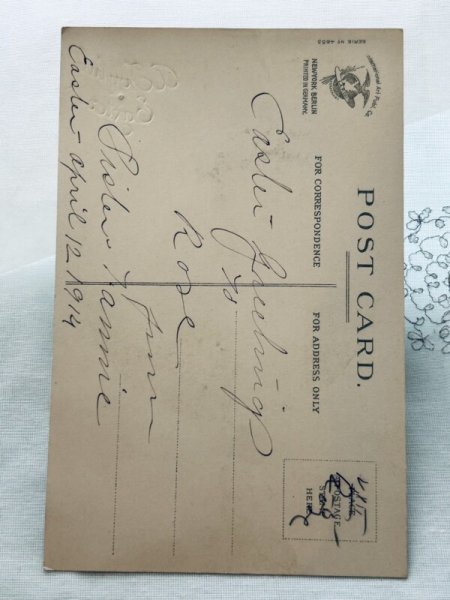 SERIE Nº 4855
International Art Publ. Co.
NEW YORK BERLIN
PRINTED IN GERMANY.
POST CARD.
FOR CORRESPONDENCE
FOR ADDRESS ONLY
POSTAGE
HERE
Easter Greetings
to
Rose
from
Sister Mammie
Easter April 12, 1914